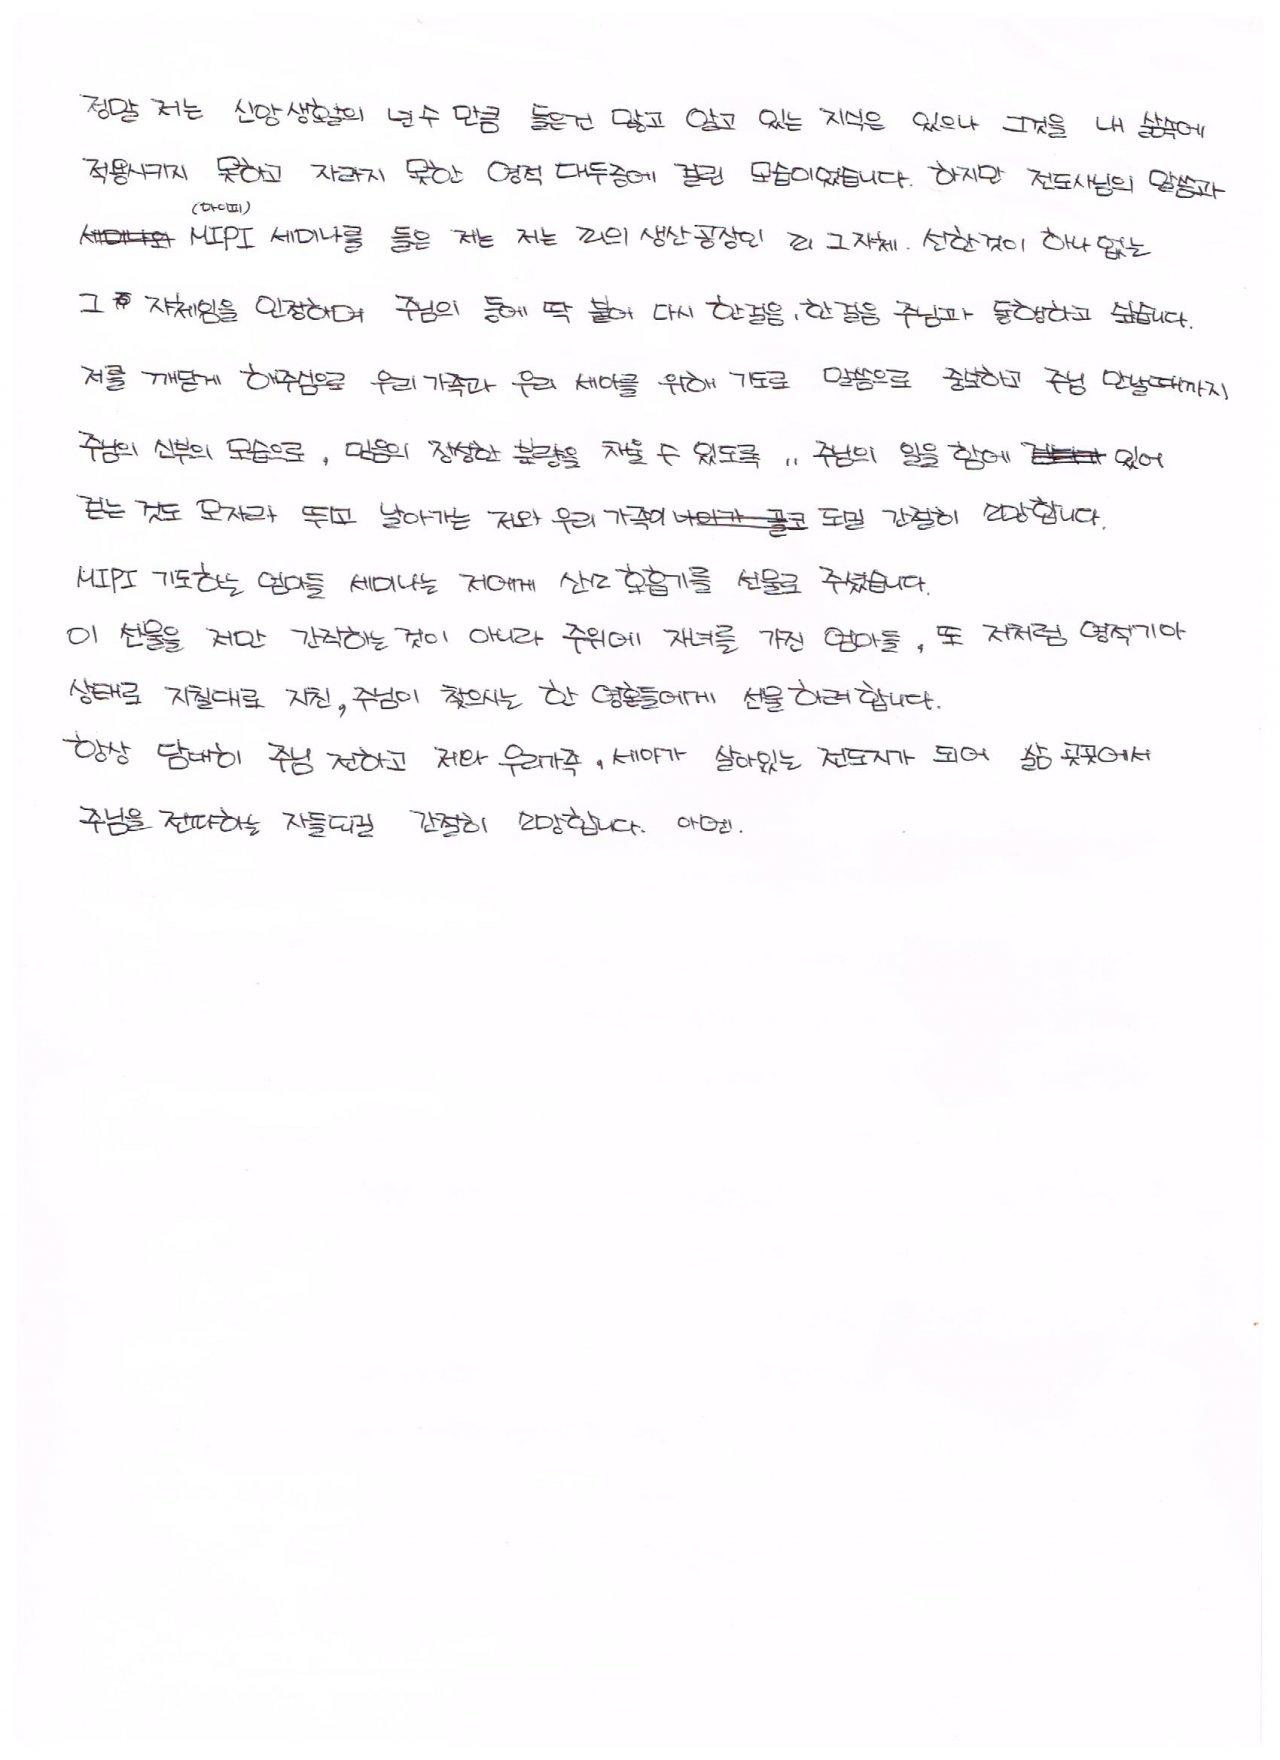 정말 저는 신앙생활의 년수 만큼 들은건 많고 알고 있는 지식은 있으나 그것을 내 삶속에
적용시키지 못하고 자라지 못한 영적 대두증에 걸린 모습이었습니다. 하지만 전도사님의 말씀과
(마이피)
세미나와 MIPI 세미나를 들은 저는 저는 죄의 생산공장인 죄 그자체. 선한것이 하나 없는
그 자체임을 인정하며 주님의 등에 딱 붙어 다시 한걸음, 한걸음 주님과 동행하고 싶습니다.
저를 깨닫게 해주심으로 우리가족과 우리 세아를 위해 기도로 말씀으로 중보하고 주님 만날때까지
주님의 신부의 모습으로, 믿음의 장성한 분량을 채울 수 있도록 ,, 주님의 일을 함에 있어
걷는 것도 모자라 뛰고 날아가는 저와 우리 가족이 되길 간절히 소망합니다.
MIPI 기도하는 엄마들 세미나는 저에게 산소 호흡기를 선물로 주셨습니다.
이 선물을 저만 간직하는 것이 아니라 주위에 자녀를 가진 엄마들, 또 저처럼 영적기아
상태로 지칠대로 지친, 주님이 찾으시는 한 영혼들에게 선물하려합니다.
항상 담대히 주님 전하고 저와 우리가족, 세아가 살아있는 전도자가 되어 삶 곳곳에서
주님을 전파하는 자들되길 간절히 소망합니다. 아멘.